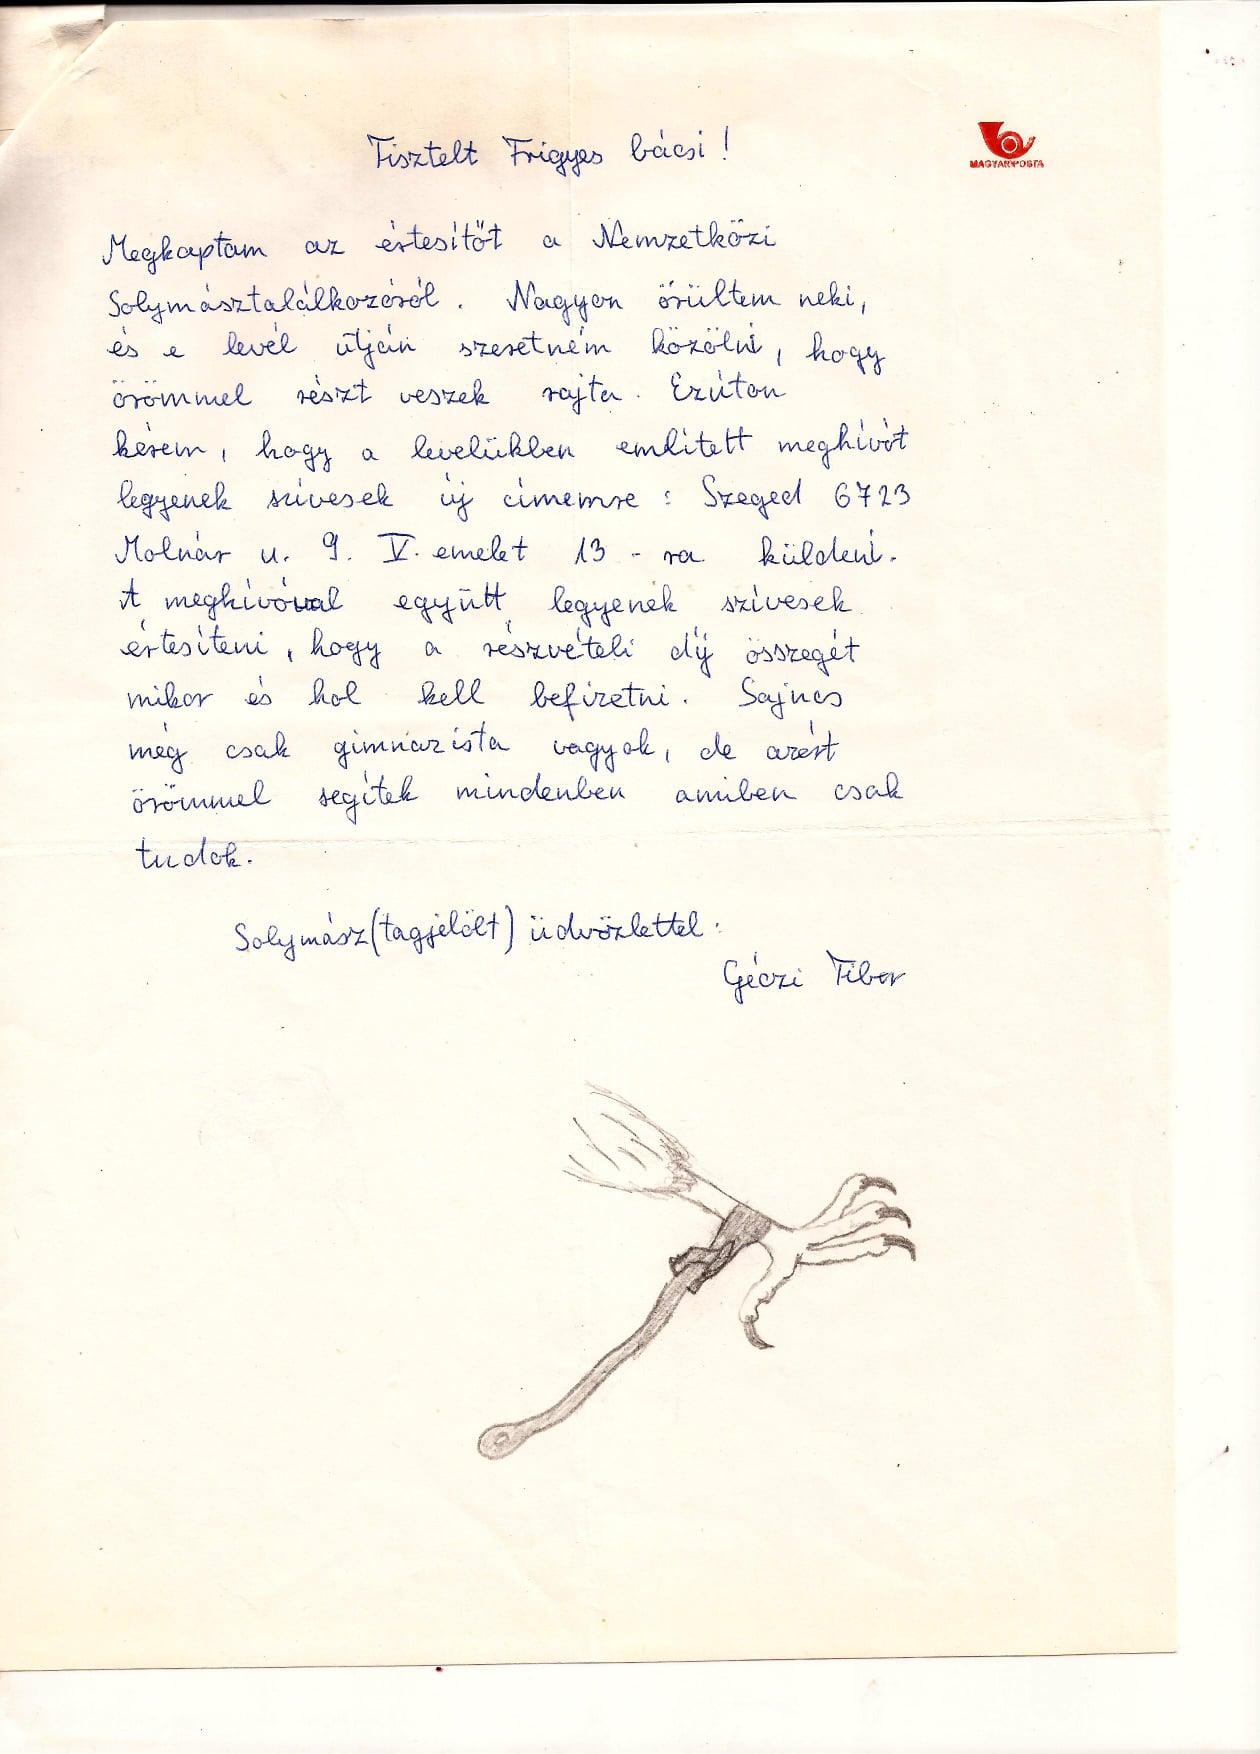 Tisztelt Frigyes bácsi!
MAGYAR POSTA
Megkaptam az értesítőt a Nemzetközi
Solymásztalálkozóról. Nagyon örültem neki,
és e levél útján szeretném közölni, hogy
örömmel részt veszek rajta. Ezúton
kérem, hogy a levelükben említett meghívót
legyenek szívesek új címemre: Szeged 6723
Molnár u. 9. V. emelet 13-ra küldeni.
A meghívóval együtt legyenek szívesek
értesíteni, hogy a részvételi díj összegét
mikor és hol kell befizetni. Sajnos
még csak gimnázista vagyok, de azért
örömmel segítek mindenben amiben csak
tudok.
Solymász(tagjelölt) üdvözlettel:
Géczi Tibor